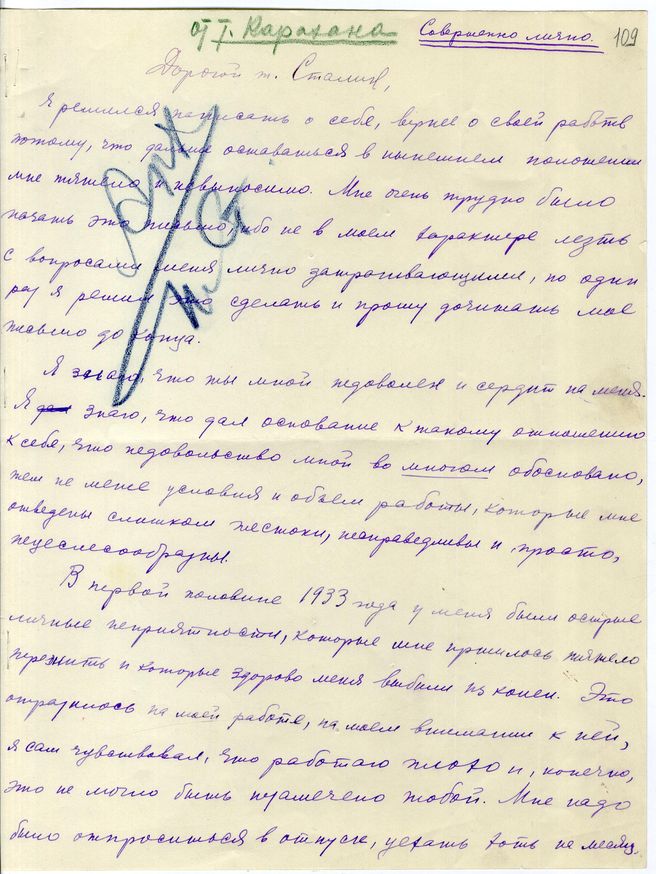 от т. Карахана Совершенно лично. 109
Дорогой т. Сталин,
Я решился написать о себе, вернее о своей работе
потому, что дальше оставаться в нынешнем положении
мне тяжело и невыносимо. Мне очень трудно было
начать это письмо, ибо не в моем характере лезть
с вопросами меня лично затрагивающими, но один
раз я решил это сделать и прошу дочитать мое
письмо до конца.
Я знаю, что ты мной недоволен и сердит на меня.
Я знаю, что дал основание к такому отношению
к себе, что недовольство мной во многом обосновано,
тем не мене условия и объем работы, которые мне
отведены слишком жестоки, несправедливы и, просто,
нецелесообразны.
В первой половине 1933 года у меня были острые
личные неприятности, которые мне пришлось тяжело
пережить и которые здорово меня выбили из колеи. Это
отразилось на моей работе, на моем внимании к ней,
я сам чувствовал, что работаю плохо и, конечно,
это не могло быть незамечено тобой. Мне надо
было отпроситься в отпуск, уехать хоть на месяц.